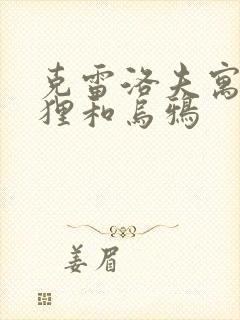 克雷洛夫寓
狸和乌鸦
姜眉